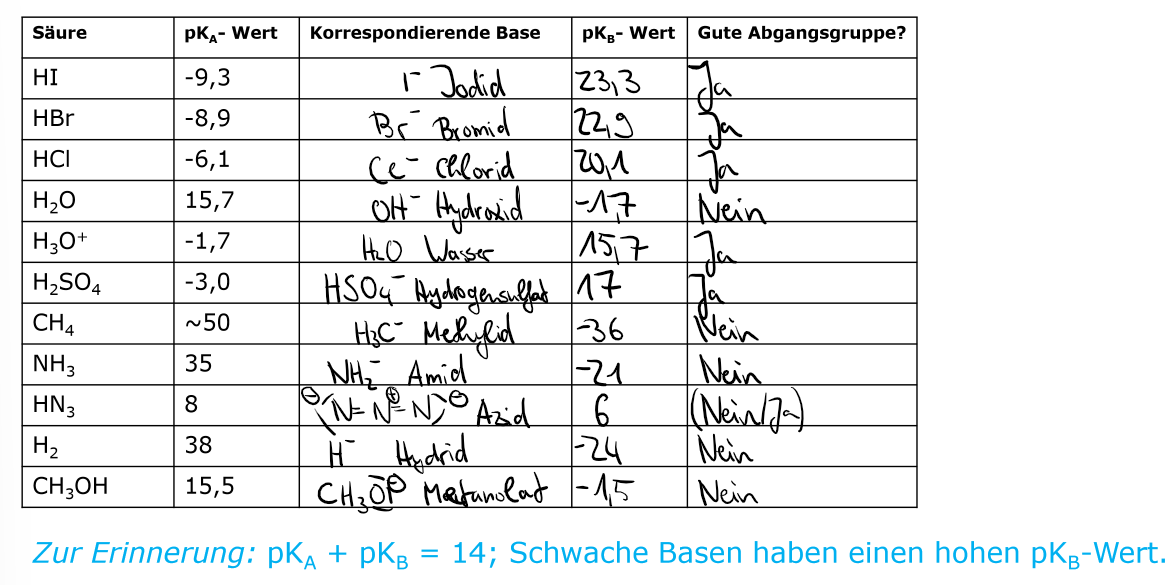 Säure pKA- Wert Korrespondierende Base pKB- Wert Gute Abgangsgruppe?
HI -9,3 I⁻ Jodid 23,3 Ja
HBr -8,9 Br⁻ Bromid 22,9 Ja
HCl -6,1 Cl⁻ Chlorid 20,1 Ja
H₂O 15,7 OH⁻ Hydroxid -1,7 Nein
H₃O⁺ -1,7 H₂O Wasser 15,7 Ja
H₂SO₄ -3,0 HSO₄⁻ Hydrogensulfat 17 Ja
CH₄ ~50 H₃C⁻ Methylid -36 Nein
NH₃ 35 NH₂⁻ Amid -21 Nein
HN₃ 8 ⊖⟨N=N⊕=N⟩⊖ Azid 6 (Nein/Ja)
H₂ 38 H⁻ Hydrid -24 Nein
CH₃OH 15,5 CH₃O⊖ Metanolat -1,5 Nein
Zur Erinnerung: pKA + pKB = 14; Schwache Basen haben einen hohen pKB-Wert.